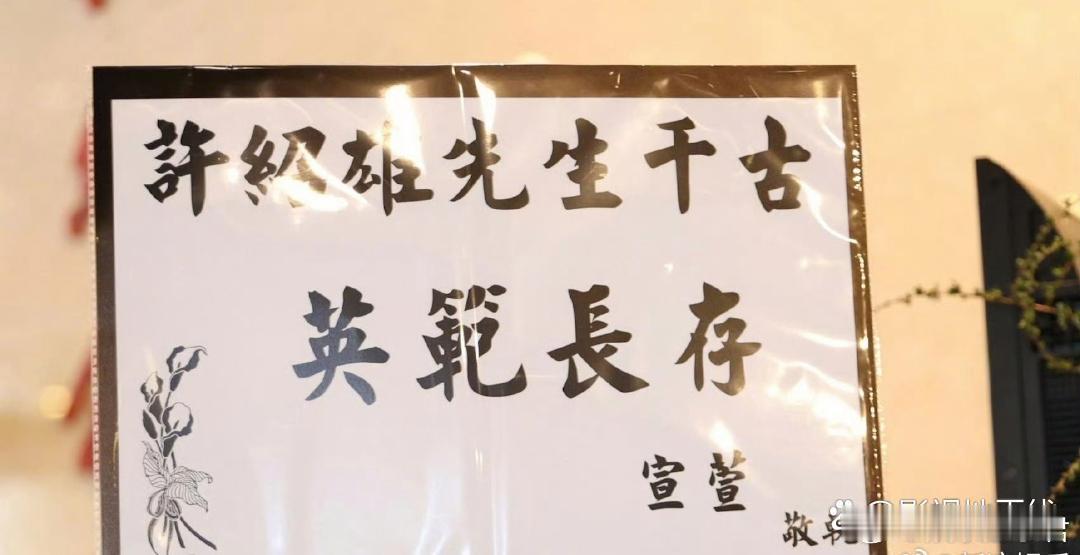 許紹雄先生千古
英範長存
宣萱
敬